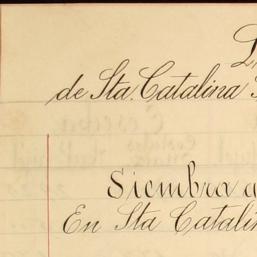 de Sta. Catalina
Siembra
En Sta Catalin